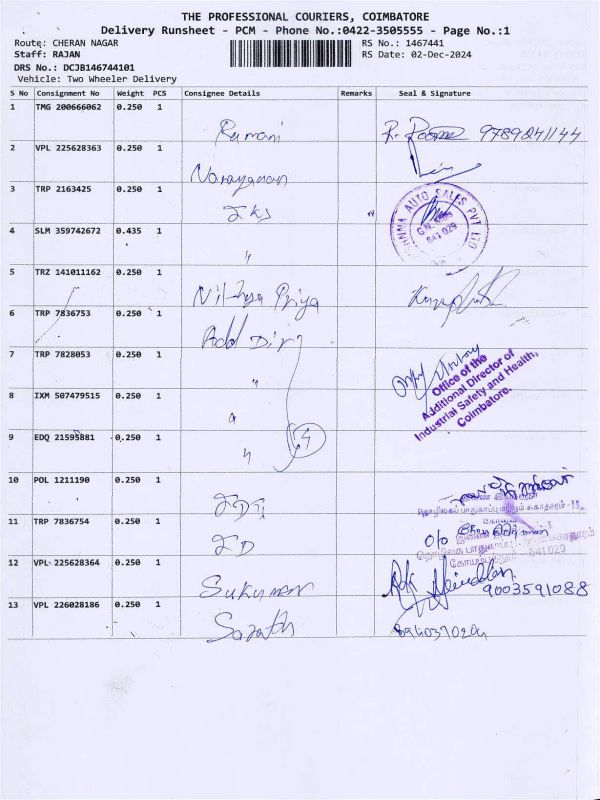 THE PROFESSIONAL COURIERS, COIMBATORE
Delivery Runsheet - PCM - Phone No.:0422-3505555 - Page No.:1
Route: CHERAN NAGAR RS No.: 1467441
Staff: RAJAN RS Date: 02-Dec-2024
DRS No.: DCJB146744101
Vehicle: Two Wheeler Delivery
S No Consignment No Weight PCS Consignee Details Remarks Seal & Signature
1 TMG 200666062 0.250 1
Ramani 9789241144
2 VPL 225628363 0.250 1
Narayanan
3 TRP 2163425 0.250 1
AUTO SALES PVT LTD
641 029
4 SLM 359742672 0.435 1
"
5 TRZ 141011162 0.250 1
Nithya Priya
6 TRP 7836753 0.250 1
Add Dir
7 TRP 7828053 0.250 1
"
Office of the
Additional Director of
Industrial Safety and Health,
Coimbatore.
8 IXM 507479515 0.250 1
"
9 EDQ 21595881 0.250 1
"
10 POL 1211190 0.250 1
11 TRP 7836754 0.250 1
JD
641 029
12 VPL 225628364 0.250 1
Sukumar 9003591088
13 VPL 226028186 0.250 1
Sarath